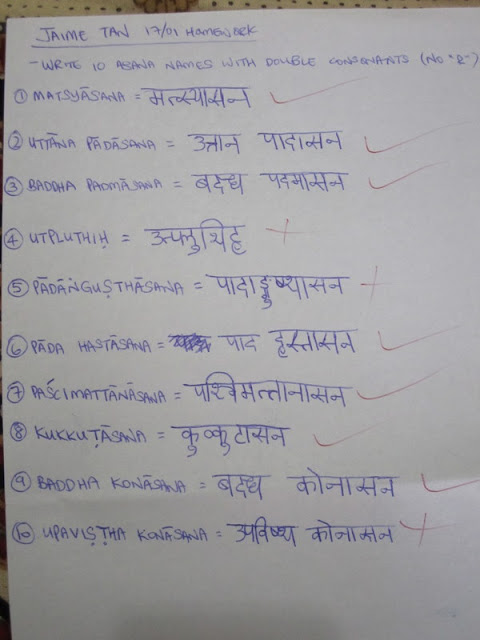 JAIME TAN 17/01 HOMEWORK
- WRITE 10 ASANA NAMES WITH DOUBLE CONSONANTS (NO "R")
① MATSYĀSANA = मत्स्यासन
② UTTĀNA PĀDĀSANA = उत्तान पादासन
③ BADDHA PADMĀSANA = बद्ध पद्मासन
④ UTPLUTHIḤ = उत्प्लुथिह्
⑤ PĀDĀṄGUṢTHĀSANA = पादाङ्गुष्थासन
⑥ PĀDA HASTĀSANA = पाद हस्तासन
⑦ PAŚCIMATTĀNĀSANA = पश्चिमत्तानासन
⑧ KUKKUṬĀSANA = कुक्कुटासन
⑨ BADDHA KONĀSANA = बद्ध कोनासन
⑩ UPAVIṢṬHA KONĀSANA = उपविष्थ कोनासन